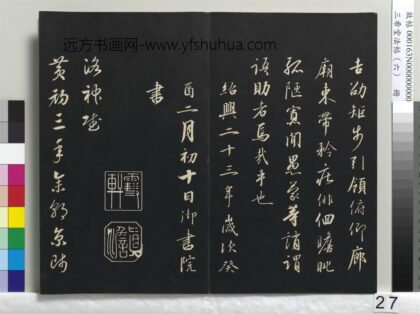 吉劭矩步引領俯仰廊
廟束帶矜莊俳佪瞻眺
孤陋寡聞愚蒙等誚謂
語助者焉哉乎也
紹興二十三年歲次癸
酉二月初十日御書院
書
洛神賦
黃初三年余朝京師
远方书画网-www.yfshuhua.com
故帖 000163N000000000
三希堂法帖(六) 冊
27